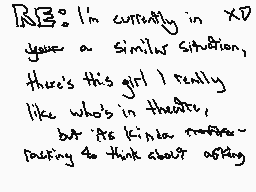 RE: I'm currently in XD
your a similar situation,
there's this girl I really
like who's in theatre,
but it's kinda
racking to think about asking